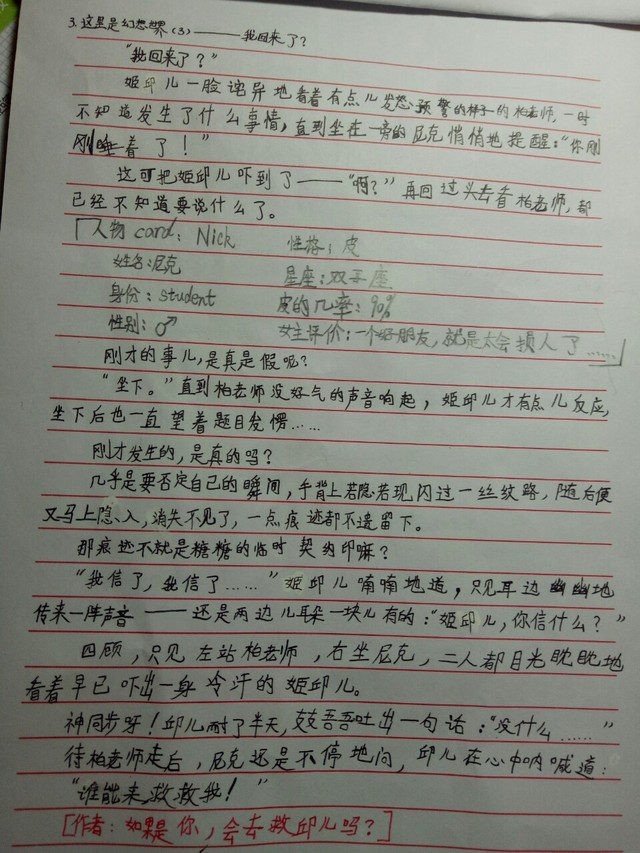 3.这里是幻想世界(3)———我回来了?
"我回来了?"
姬邱儿一脸诧异地看着有点儿发怒预警的样子的柏老师,一时
不知道发生了什么事情,直到坐在一旁的尼克悄悄地提醒:"你刚
刚睡着了!"
这可把姬邱儿吓到了——"啊?"再回过头去看柏老师,都
已经不知道要说什么了。
「人物card:Nick 性格:皮
姓名:尼克 星座:双子座
身份:student 皮的几率:90%
性别:♂ 女主评价:一个好朋友,就是太会损人了……」
刚才的事儿,是真是假呢?
"坐下。"直到柏老师没好气的声音响起,姬邱儿才有点儿反应,
坐下后也一直望着题目发愣……
刚才发生的,是真的吗?
几乎是要否定自己的瞬间,手背上若隐若现闪过一丝纹路,随后便
又马上隐入,消失不见了,一点痕迹都不遗留下。
那痕迹不就是糖糖的临时契约印嘛?
"我信了,我信了……"姬邱儿喃喃地道,只见耳边幽幽地
传来一阵声音——还是两边儿耳朵一块儿有的:"姬邱儿,你信什么?"
四顾,只见左站柏老师,右坐尼克,二人都目光眈眈地
看着早已吓出一身冷汗的姬邱儿。
神同步呀!邱儿耐了半天,支吾吾吐出一句话:"没什么……"
待柏老师走后,尼克还是不停地问,邱儿在心中呐喊道:
"谁能来救救我!"
[作者:如果是你,会去救邱儿吗?]